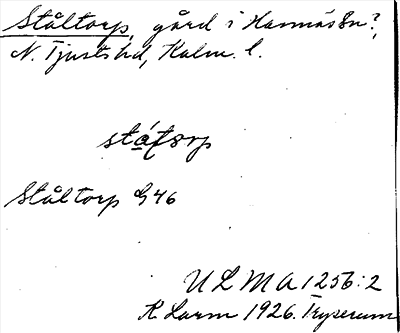 Ståltorp, gård i Hannäs sn?,
N. Tjusts hd, Kalm. l.
Ståltorp G46
ULMA 1256:2
K. Larm 1926. Tryserum